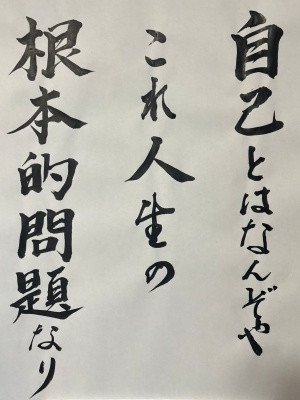 自己とはなんぞや
これ人生の
根本的問題なり